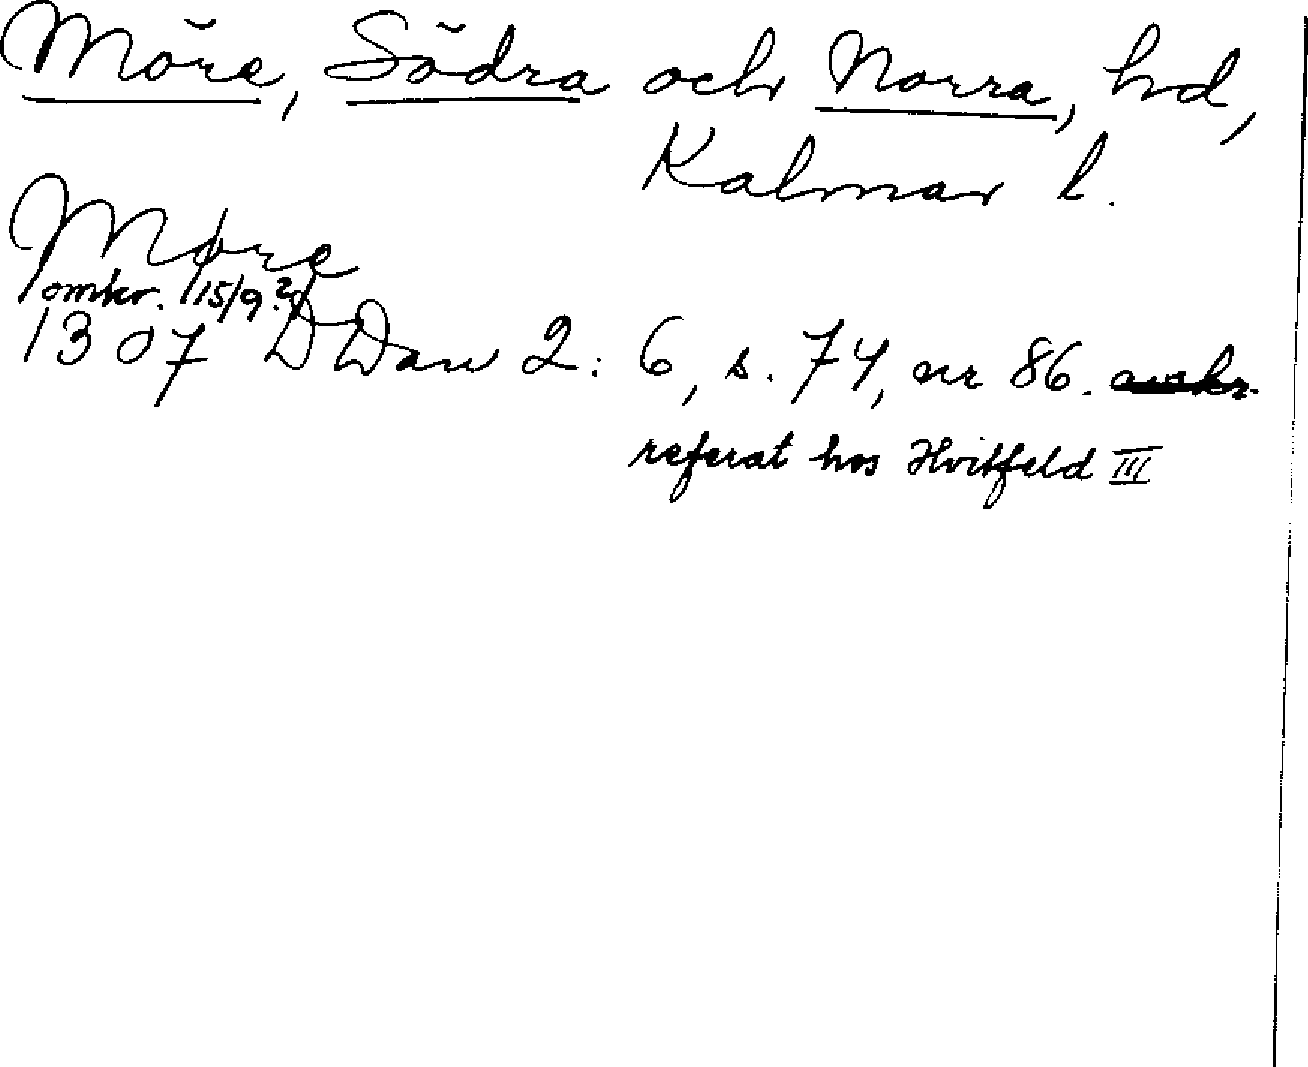 Möre, Södra och Norra, hd,
Kalmar l.
Møre
omkr. 15/9?
1307 DDan 2: 6, s. 74, nr 86.
referat hos Hvitfeld III